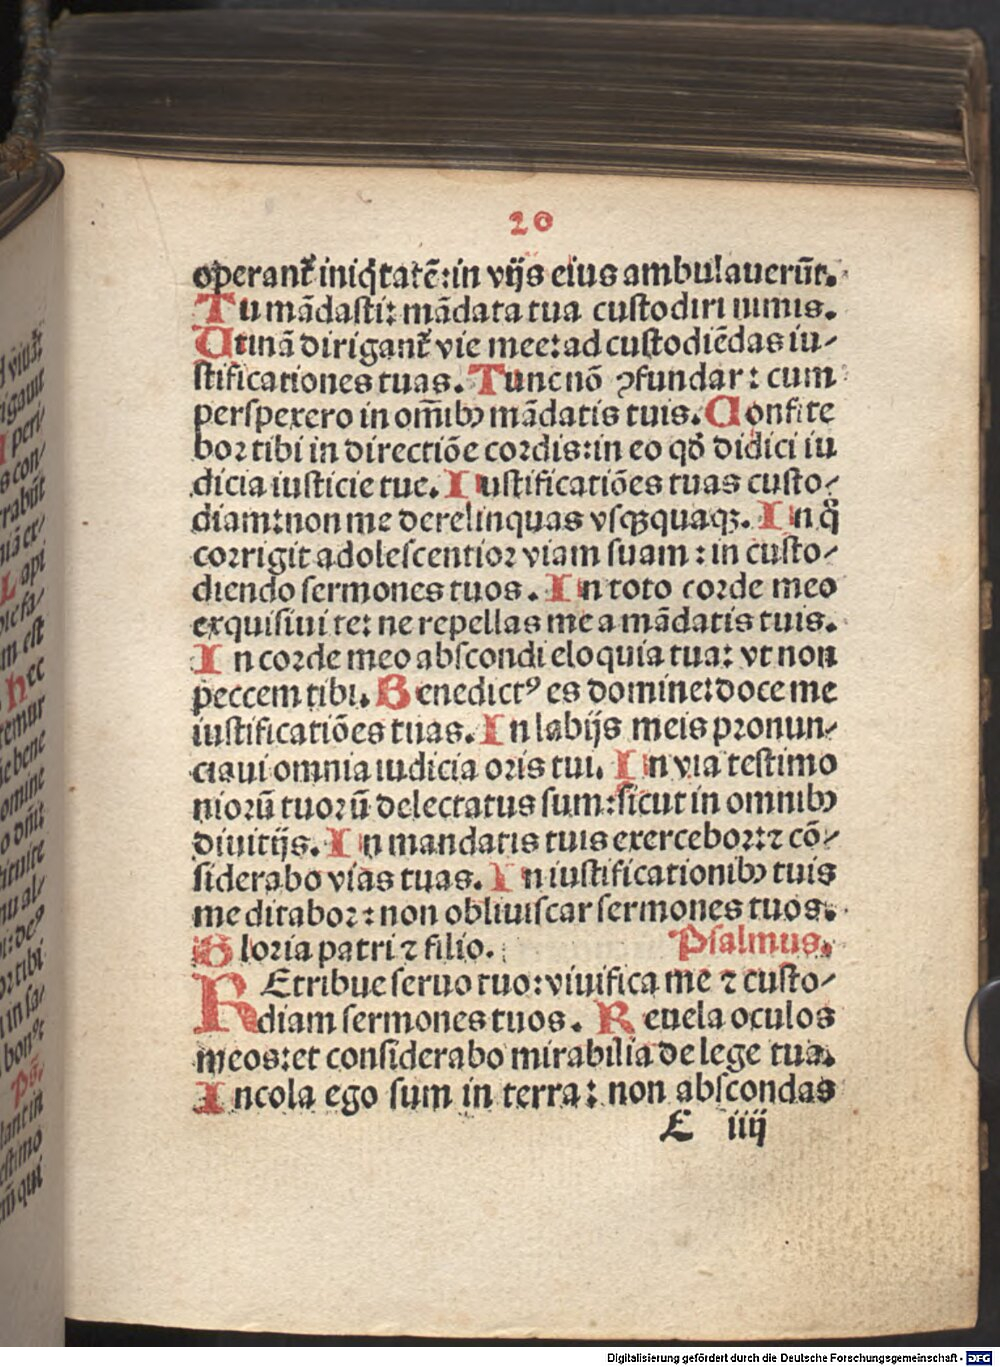 20
operant᷑ iniq̇tatē:in vijs eius ambulauerūt.
Tu mādasti: mādata tua custodiri nimis.
Utinā dirigant᷑ vie mee:ad custodiēdas iu/
stificationes tuas. Tunc nō ꝯfundar: cum
perspexero in om̄ibꝰ mādatis tuis. Confite
bor tibi in directiōe cordis:in eo qđ didici iu
dicia iusticie tue. Iustificatiōes tuas custo/
diam:non me derelinquas vsqꝫquaqꝫ. In q̊
corrigit adolescentior viam suam : in custo/
diendo sermones tuos. In toto corde meo
exquisiui te: ne repellas me a mādatis tuis.
In corde meo abscondi eloquia tua: vt non
peccem tibi. Benedictꝰ es domine:doce me
iustificatiōes tuas. In labijs meis pronun/
ciaui omnia iudicia oris tui. In via testimo
niorū tuorū delectatus sum:sicut in omnibꝰ
diuitijs. In mandatis tuis exercebor:⁊ cō/
siderabo vias tuas. In iustificationibꝰ tuis
meditabor: non obliuiscar sermones tuos.
Gloria patri ⁊ filio. Psalmus.
REtribue seruo tuo:viuifica me ⁊ custo/
diam sermones tuos. Reuela oculos
meos:et considerabo mirabilia de lege tua.
Incola ego sum in terra: non abscondas
E iiij
Digitalisierung gefördert durch die Deutsche Forschungsgemeinschaft - DFG